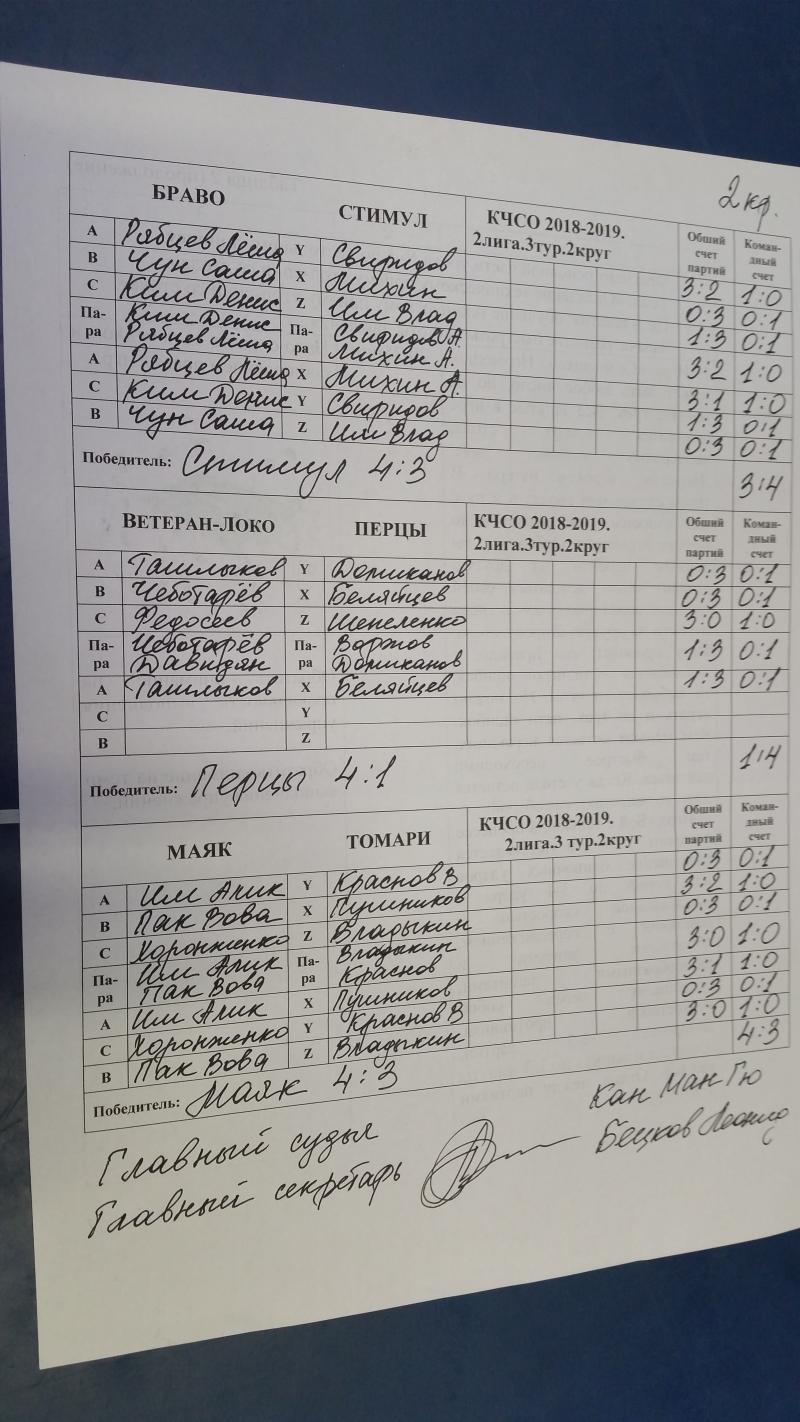 2 кр.
БРАВО СТИМУЛ КЧСО 2018-2019. 2лига.3тур.2круг Общий счет партий Коман-дный счет
A Рябцев Лёша Y Свиридов 3:2 1:0
B Чун Саша X Михин 0:3 0:1
C Ким Денис Z Им Влад 1:3 0:1
Па-ра Ким Денис Рябцев Лёша Па-ра Свиридов А. Михин А. 3:2 1:0
A Рябцев Лёша X Михин А. 3:1 1:0
C Ким Денис Y Свиридов 1:3 0:1
B Чун Саша Z Им Влад 0:3 0:1
Победитель: Стимул 4:3 3:4
ВЕТЕРАН-ЛОКО ПЕРЦЫ КЧСО 2018-2019. 2лига.3тур.2круг Общий счет партий Коман-дный счет
A Ташлыков Y Домиканов 0:3 0:1
B Чеботарёв X Беляйцев 0:3 0:1
C Федосеев Z Шепеленко 3:0 1:0
Па-ра Чеботарёв Давидян Па-ра Варжов Домиканов 1:3 0:1
A Ташлыков X Беляйцев 1:3 0:1
C Y
B Z
Победитель: Перцы 4:1 1:4
МАЯК ТОМАРИ КЧСО 2018-2019. 2лига.3 тур.2круг Общий счет партий Коман-дный счет
A Им Алик Y Краснов В 0:3 0:1
B Пак Вова X Пушников 3:2 1:0
C Хоронженко Z Владыкин 0:3 0:1
Па-ра Им Алик Пак Вова Па-ра Владыкин Краснов 3:0 1:0
A Им Алик X Пушников 3:1 1:0
C Хоронженко Y Краснов В 0:3 0:1
B Пак Вова Z Владыкин 3:0 1:0
Победитель: Маяк 4:3 4:3
Главный судья Кан Ман Гю
Главный секретарь Бецков Леонид